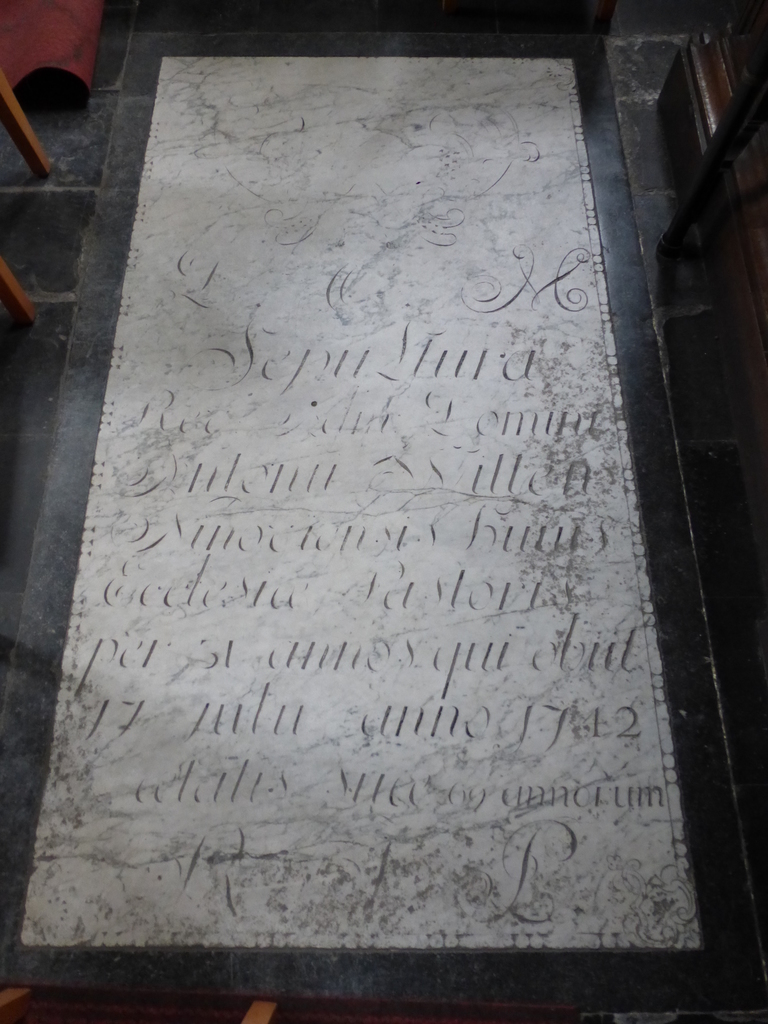 D O M
Sepultura
Rev. Adm. Domini
Antonii Witten
huius
Ecclesiæ Pastoris
per 31 annos qui obiit
17 julii anno 1742
ætatis suæ 69 annorum
R I P